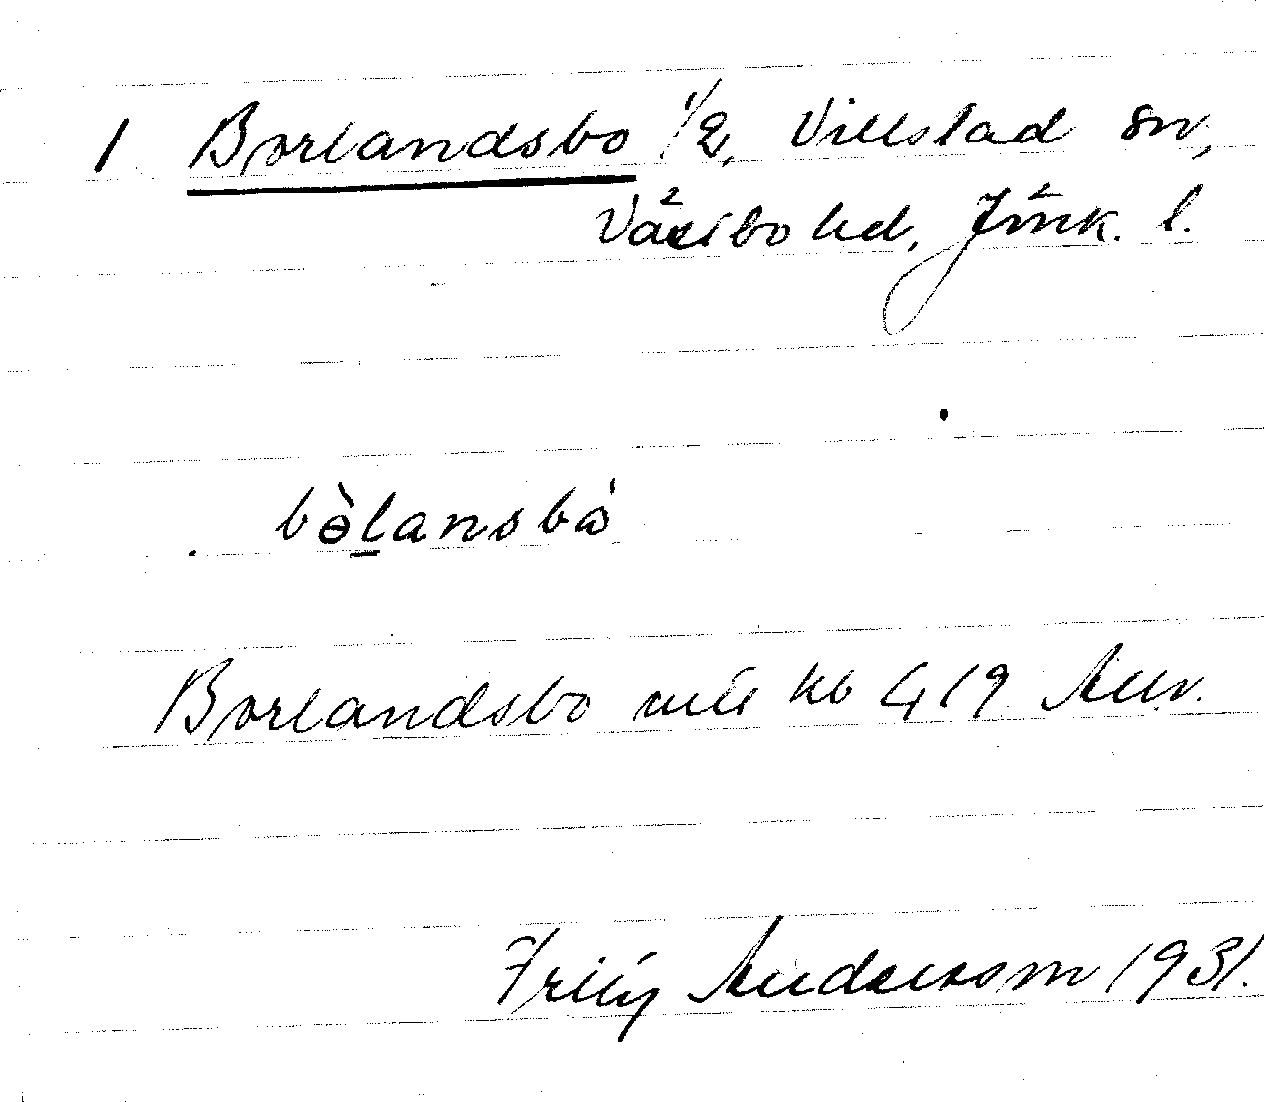 1 Borlandsbo 1/2, Villstad sn,
Västbo hd, Jönk. l.
bɵ̀lansbó
Borlandsbo mtl kb 419 Allm.
Fritz Andersson 1931.